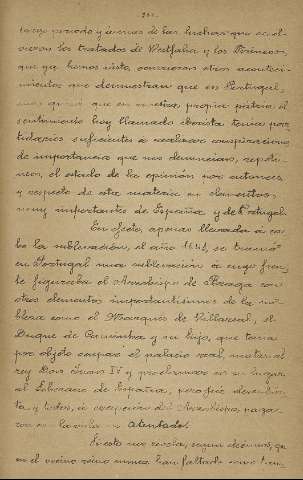 largo periodo y
vieron los tratados de Westfalia y los Pirineos,
que ya hemos visto, ocurrieron otros aconteci-
mientos que demuestran que en Portugal
que en nuestra propia patria el
sentimiento hoy llamado iberista tenia par-
tidarios suficientes á realizar conspiraciones
de importancia que nos denuncian, repeti-
mos, el estado de la opinión por entonces
y respecto de esta materia en elementos
muy importantes de España y de Portugal.
En efecto, apenas llevada á ca-
bo la sublevación, el año 1641, se tramó
en Portugal una sublevación á cuyo fren-
te figuraba el Arzobispo de Braga con
otros elementos importantísimos de la no-
bleza como el Marqués de Villareal, el
Duque de Caminha y su hijo, que tenía
por objeto ocupar el palacio real, matar al
rey Don Juan IV y proclamar en su lugar
al Soberano de España, pero fué descubier-
ta y todos, á excepción del Arzobispo, paga-
ron su atentado.
revela, según decimos, que
en el vecino reino nunca han faltado